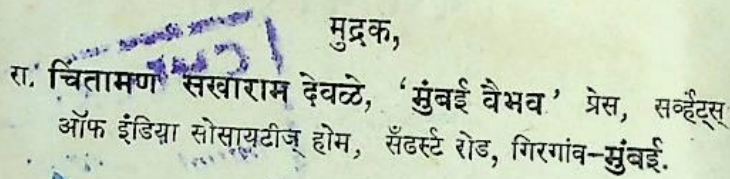 मुद्रक,
रा. चिंतामण सखाराम देवळे, ‘मुंबई वैभव’ प्रेस, सर्व्हंट्स्
ऑफ इंडिया सोसायटीज् होम, सँढर्स्ट रोड, गिरगांव–मुंबई.